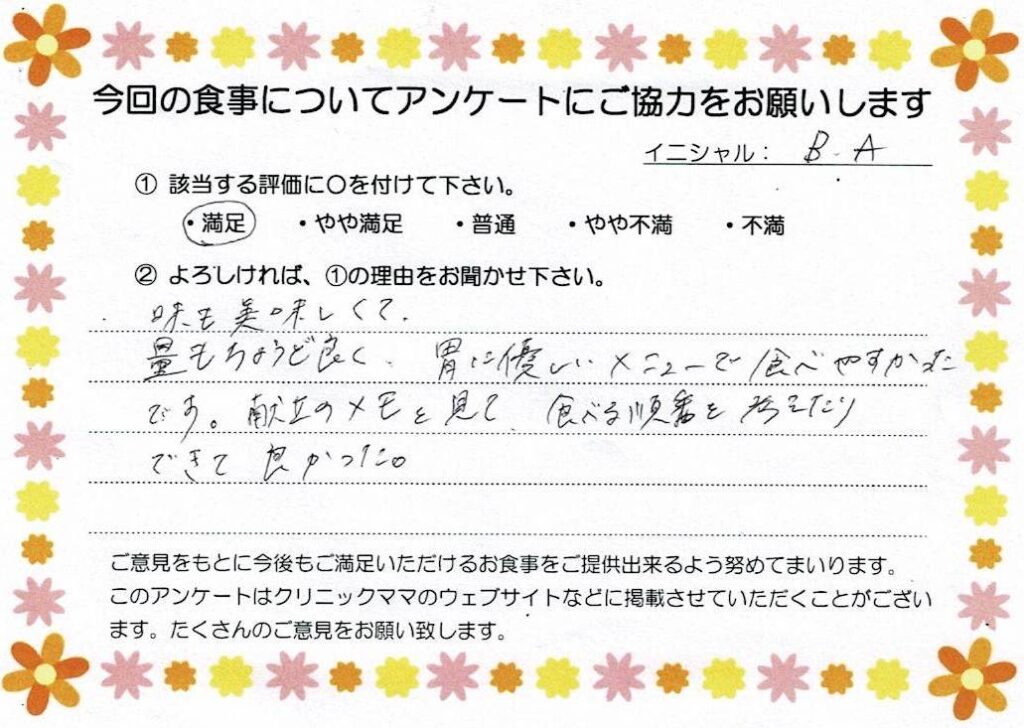 今回の食事についてアンケートにご協力をお願いします
イニシャル： B.A
① 該当する評価に〇を付けて下さい。
・満足 ・やや満足 ・普通 ・やや不満 ・不満
② よろしければ、①の理由をお聞かせ下さい。
味も美味しくて、
量もちょうど良く、胃に優しいメニューで食べやすかった
です。献立のメモを見て、食べる順番を考えたり
できて良かった。
ご意見をもとに今後もご満足いただけるお食事をご提供出来るよう努めてまいります。
このアンケートはクリニックママのウェブサイトなどに掲載させていただくことがござい
ます。たくさんのご意見をお願い致します。